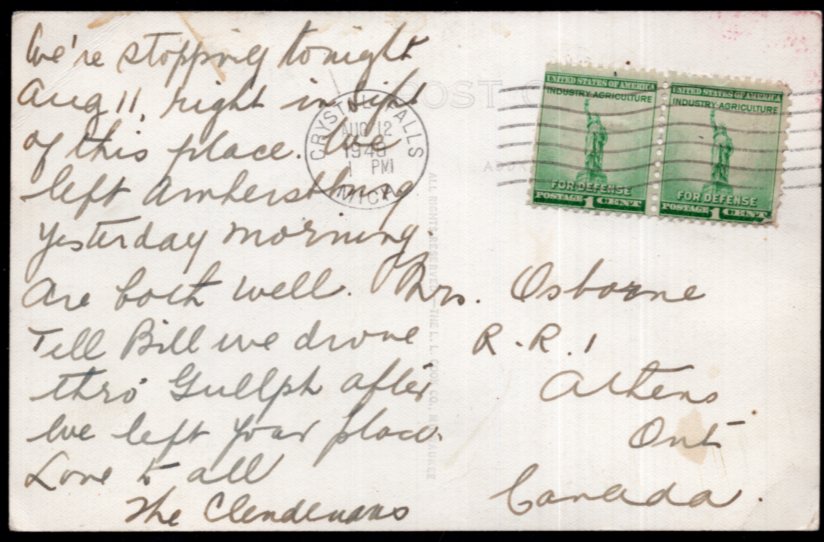 We're stopping tonight
Aug 11, right in sight
of this place. We
left Amherstburg
yesterday morning.
Are both well.
Till Bill we drove
thro' Gullph after
we left your place.
Love to all
The Clendenans
POST
CRYSTAL FALLS
AUG 12
1 PM
MICH
UNITED STATES OF AMERICA
INDUSTRY-AGRICULTURE
FOR DEFENSE
POSTAGE 1 CENT
UNITED STATES OF AMERICA
INDUSTRY-AGRICULTURE
FOR DEFENSE
POSTAGE 1 CENT
ALL RIGHTS RESERVED THE L. L. COOK CO.
Mrs. Osborne
R.R.1
Athens
Ont
Canada.